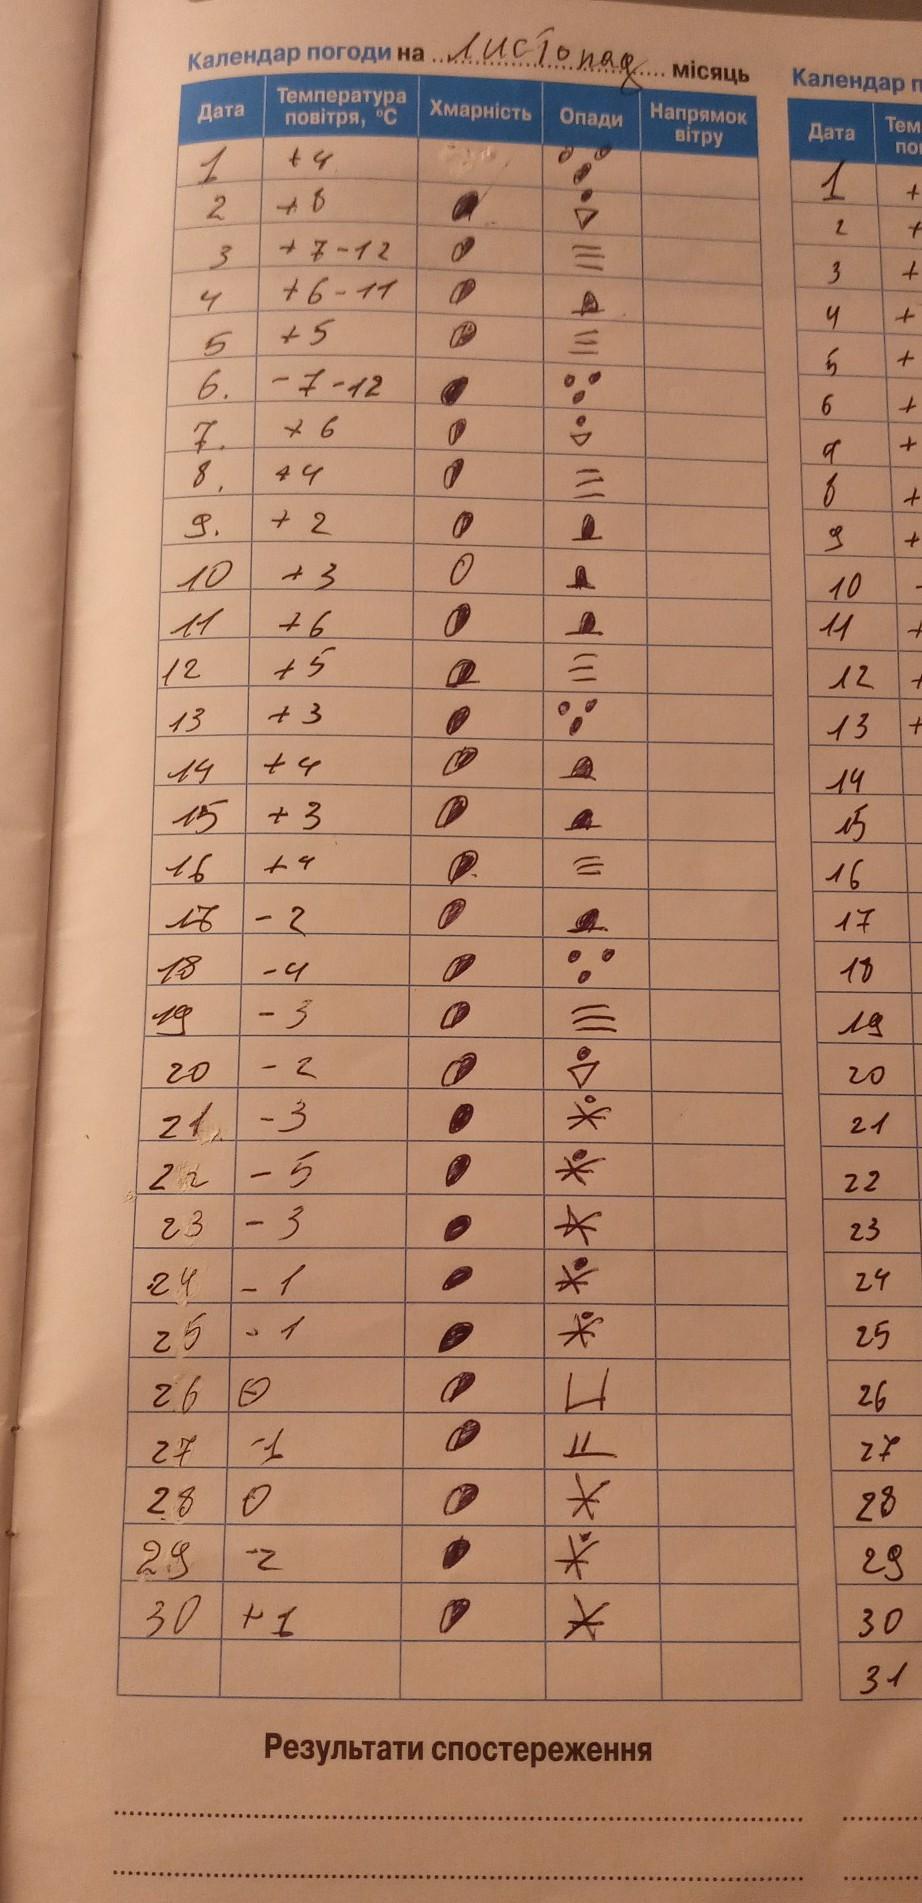 Календар погоди на листопад місяць
Дата Температура повітря, °С Хмарність Опади Напрямок вітру
1 +4
2 +8
3 +7-12
4 +6-11
5 +5
6. -7-12
7. +6
8. +4
9. +2
10 +3
11 +6
12 +5
13 +3
14 +4
15 +3
16 +4
17 -2
18 -4
19 -3
20 -2
21 -3
22 -5
23 -3
24 -1
25 -1
26 0
27 -1
28 0
29 -2
30 +1
Результати спостереження
Календар п
Дата Тем
по
1 +
2 +
3 +
4 +
5 +
6 +
+
8 +
9 +
10 -
11 +
12 +
13 +
14
15
16
17
18
19
20
21
22
23
24
25
26
27
28
29
30
31